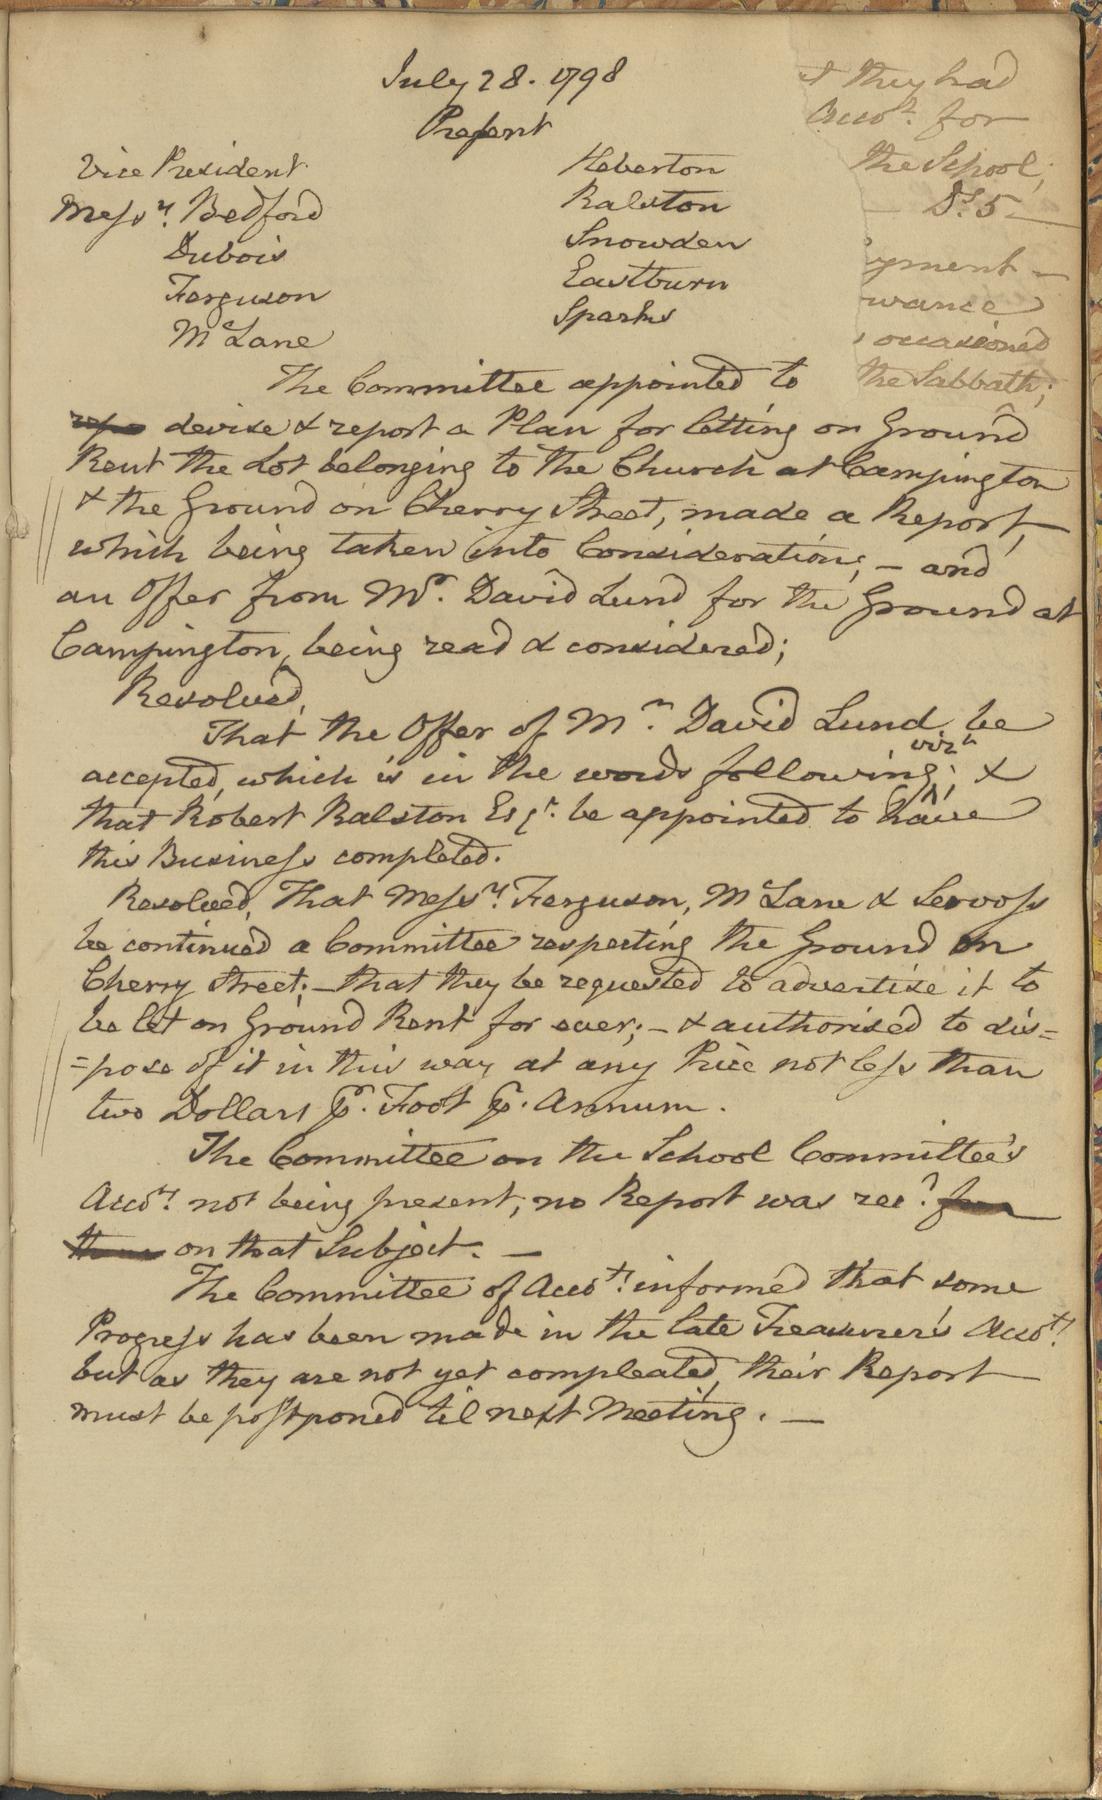 July 28. 1798
Present
Vice President
Messrs. Bedford
Dubois
Ferguson
McLane
Heberton
Ralston
Snowden
Eastburn
Sparks
t they had
Accot. for
the School;
— Ds. 5 —
yment —
wance
occasioned
the Sabbath;
The Committee appointed to
devise & report a Plan for letting on Ground
Rent the Lot belonging to the Church at Campington
& the Ground on Cherry Street, made a Report,
which being taken into Consideration; — and
an Offer from Mr. David Lund for the Ground at
Campington, being read & considered;
Resolved,
That the Offer of Mr. David Lund be
accepted, which is in the words following; vizt. &
that Robert Ralston Esqr. be appointed to have
this Business completed.
Resolved, That Messrs. Ferguson, McLane & Servoss
be continued a Committee respecting the Ground on
Cherry Street; — that they be requested to advertise it to
be let on Ground Rent for ever; — & authorised to dis=
=pose of it in this way at any Price not less than
two Dollars pr. Foot pr. Annum.
The Committee on the School Committee's
Accots. not being present, no Report was recd.
on that Subject. —
The Committee of Accots. informed that some
Progress has been made in the late Treasurer's Accots.
but as they are not yet compleated, their Report
must be postponed til next Meeting. —